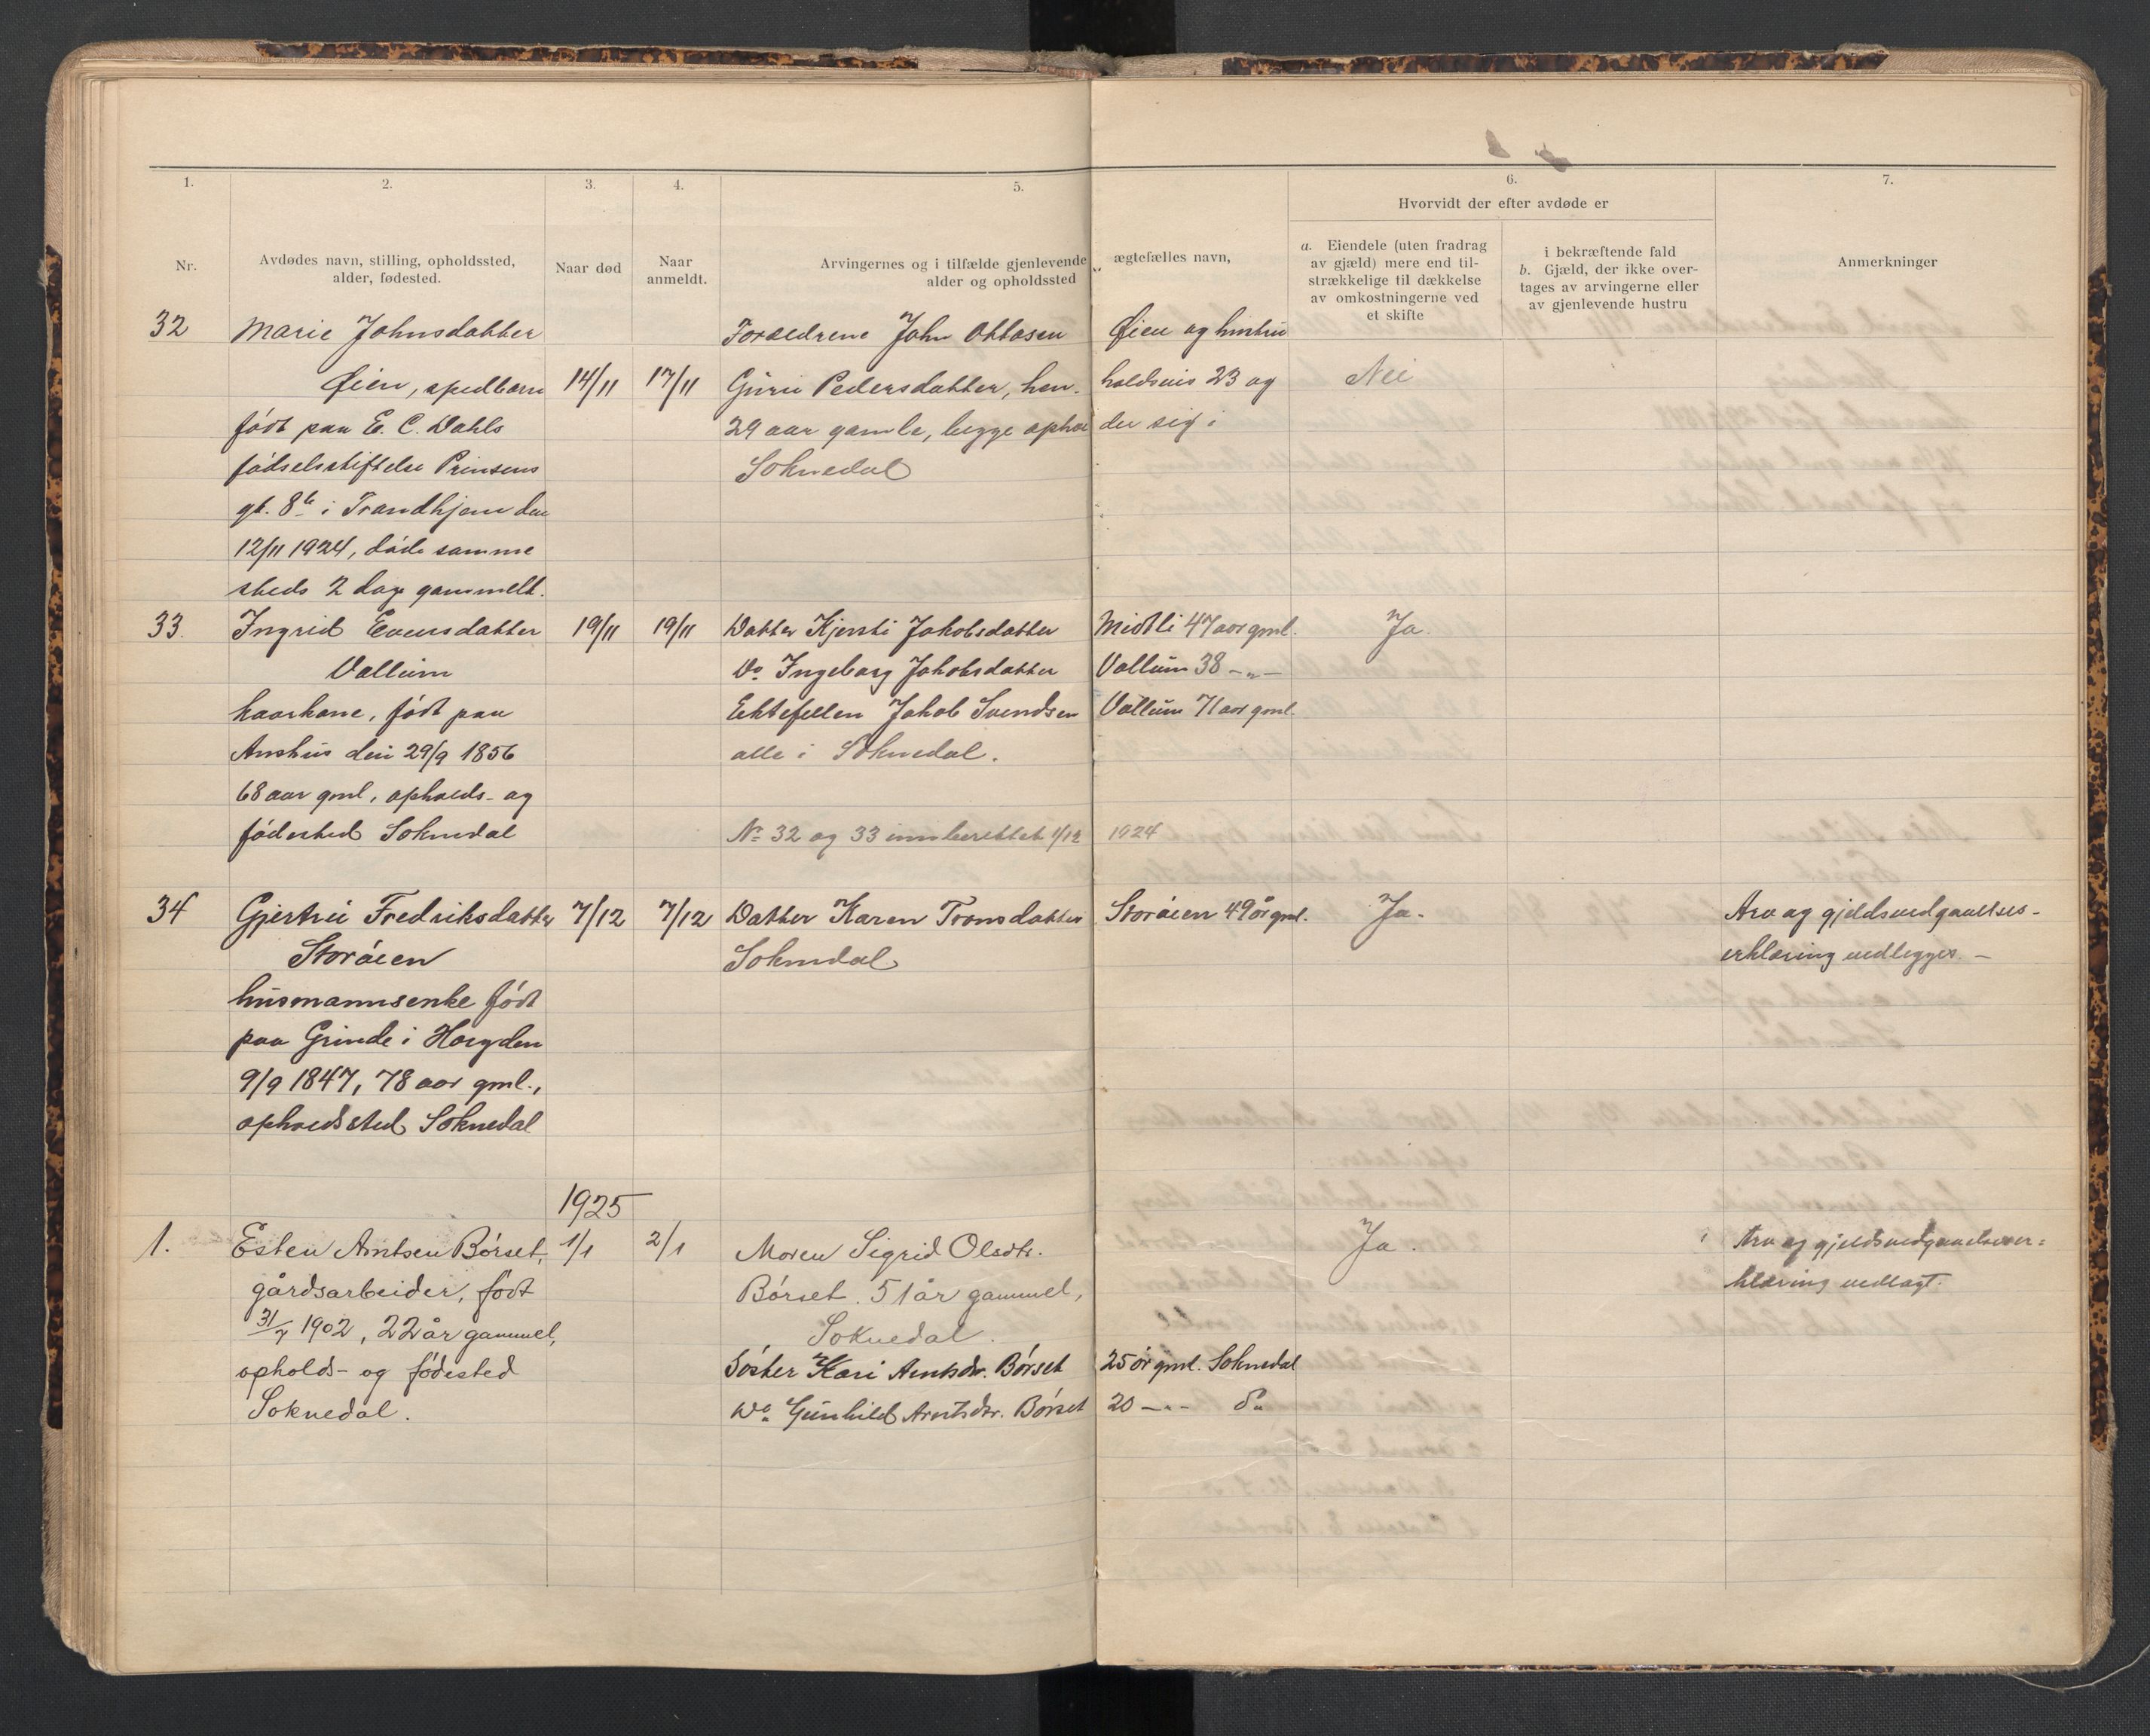 1.
2.
3.
4.
5.
6.
7.
Nr.
Avdødes navn, stilling, opholdssted,
alder, fødested.
Naar død
Naar
anmeldt.
Arvingernes og i tilfælde gjenlevende ægtefælles navn,
alder og opholdssted
Hvorvidt der efter avdøde er
a. Eiendele (uten fradrag
av gjæld) mere end til-
strækkelige til dækkelse
av omkostningerne ved
et skifte
i bekræftende fald
b. Gjæld, der ikke over-
tages av arvingerne eller
av gjenlevende hustru
Anmerkninger
32 Marie Johnsdatter
Øien, spedbarn 14/11 17/11
født paa E. C. Dahls
fødselsstiftelse Prinsens
gt. 8b i Trondhjem den
12/11 1924, døde samme
steds 2 dage gammelt.
Foreldrene John Ottosen Øien og hustru
Guru Pedersdatter, hen- holdsvis 23 og Nei
29 aar gamle, begge ophol der sig i
Soknedal
33. Ingrid Evensdatter 19/11 19/11
Vollum
kaarkone, født paa
Anshus den 29/9 1856
68 aar gml, opholds- og
fødested Soknedal
Datter Kjersti Jakobsdatter Midtli 47 aar gml. Ja.
Do Ingeborg Jakobsdatter Vollum 38 -"-
Ektefellen Jakob Svendsen Vollum 71 aar gml.
alle i Soknedal.
No 32 og 33 innberettet 1/12 1924
34 Gjertru Fredriksdatter 7/12 7/12
Storøien
husmannsenke født
paa Grinde i Horg den
9/9 1847, 78 aar gml.,
opholdssted Soknedal
Datter Karen Tronsdatter Storøien 49 år gml. Ja.
Soknedal
Arv og gjeldsvedgaaelses-
erklæring vedlegges. -
1925
1. Esten Arntsen Børset, 1/1 2/1
gårdsarbeider, født
31/7 1902, 22 år gammel,
opholds- og fødested
Soknedal.
Moren Sigrid Olsdtr.
Børset. 51 år gammel,
Soknedal.
Søster Kari Arntsdr. Børset 25 år gml. Soknedal
Do Gunhild Arntsdr. Børset 20 -"- do
Ja.
Arv og gjeldsvedgaaelseser=
klæring vedlagt.